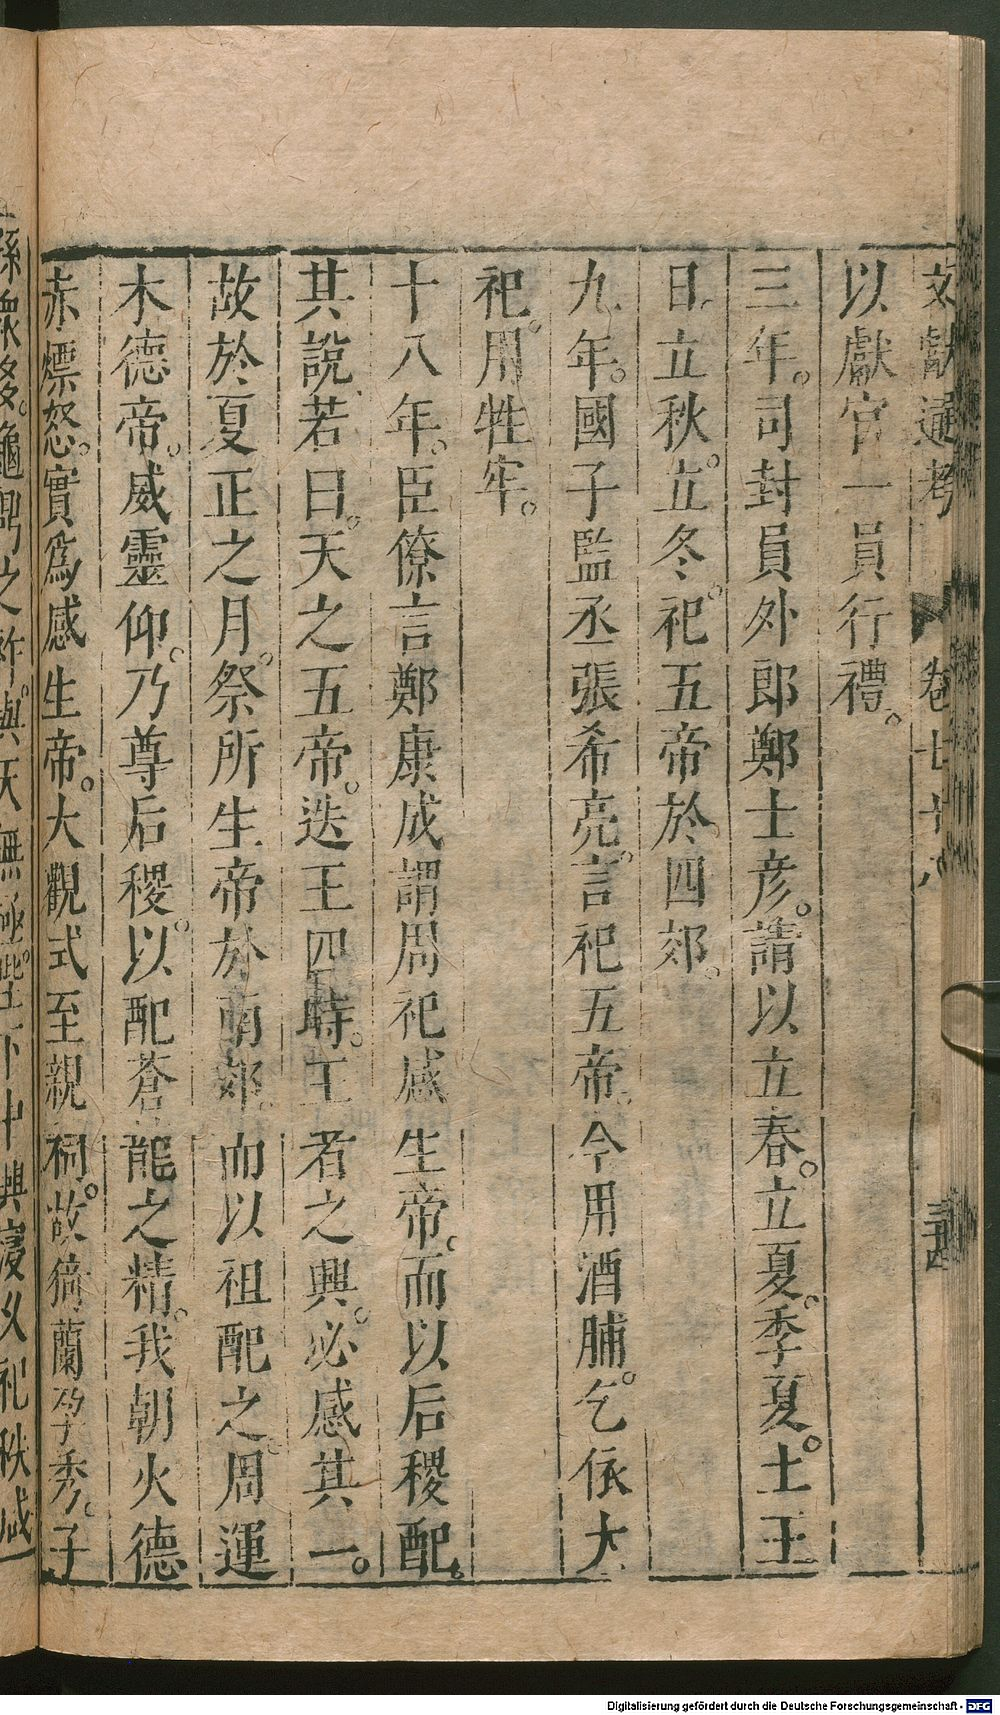 文獻通考 卷七十八 三古
以獻官一員行禮。
三年。司封員外郎鄭士彦。請以立春。立夏。季夏。土王
日。立秋。立冬。祀五帝於四郊。
九年。國子監丞張希亮。言祀五帝。今用酒脯。乞依大
祀。用牲牢。
十八年。臣僚言鄭康成謂周祀感生帝。而以后稷配。
其說若曰。天之五帝。迭王四時。王者之興。必感其一。
故於夏正之月。祭所生帝於南郊。而以祖配之。周運
木德帝。威靈仰。乃尊后稷。以配蒼龍之精。我朝火德
赤熛怒。實爲感生帝。大觀式至親祠。故猗蘭孕秀。子
孫衆多。龜鼎之祚。與天無極。
中興寖以祀秩咸
Digitalisierung gefördert durch die Deutsche Forschungsgemeinschaft - DFG